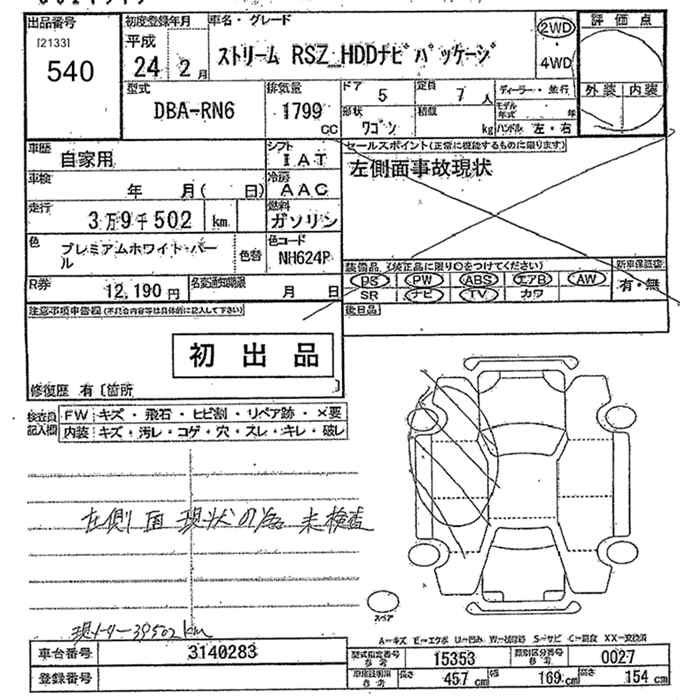 出品番号 初度登録年月 車名・グレード 2WD 評価点
[2133] 540 平成 24 2月 ストリーム RSZ HDDナビパッケージ ・ 4WD
型式 排気量 ドア 5 定員 7人 ディーラー・並行 外装 内装
DBA-RN6 1799 cc 形状 ワゴン 積載 kg モデル年式 年 ハンドル 左・右
車歴 自家用 シフト IAT セールスポイント(正常に機能するものに限ります)
車検 年 月( 日) 冷房 AAC 左側面事故現状
走行 3万9千502 km 燃料 ガソリン
色 プレミアムホワイト・パール 色替 色コード NH624P
装備品 (純正品に限り○をつけてください) 新車保証書
R券 12,190円 名変通知期限 月 日 PS PW ABS エアB AW 有・無
SR ナビ TV カワ
注意事項申告欄(不具合内容等は具体的に記入して下さい)
初出品
修復歴 有〔箇所 〕
検査員記入欄 FW キズ・飛石・ヒビ割・リペア跡・×要
内装 キズ・汚レ・コゲ・穴・スレ・キレ・破レ
左側面現状の為未検査
スペア
現メーター39502km
車台番号 3140283 型式指定番号 参考 15353 類別区分番号 参考 0027
登録番号 長さ 457cm 幅 169cm 高さ 154cm